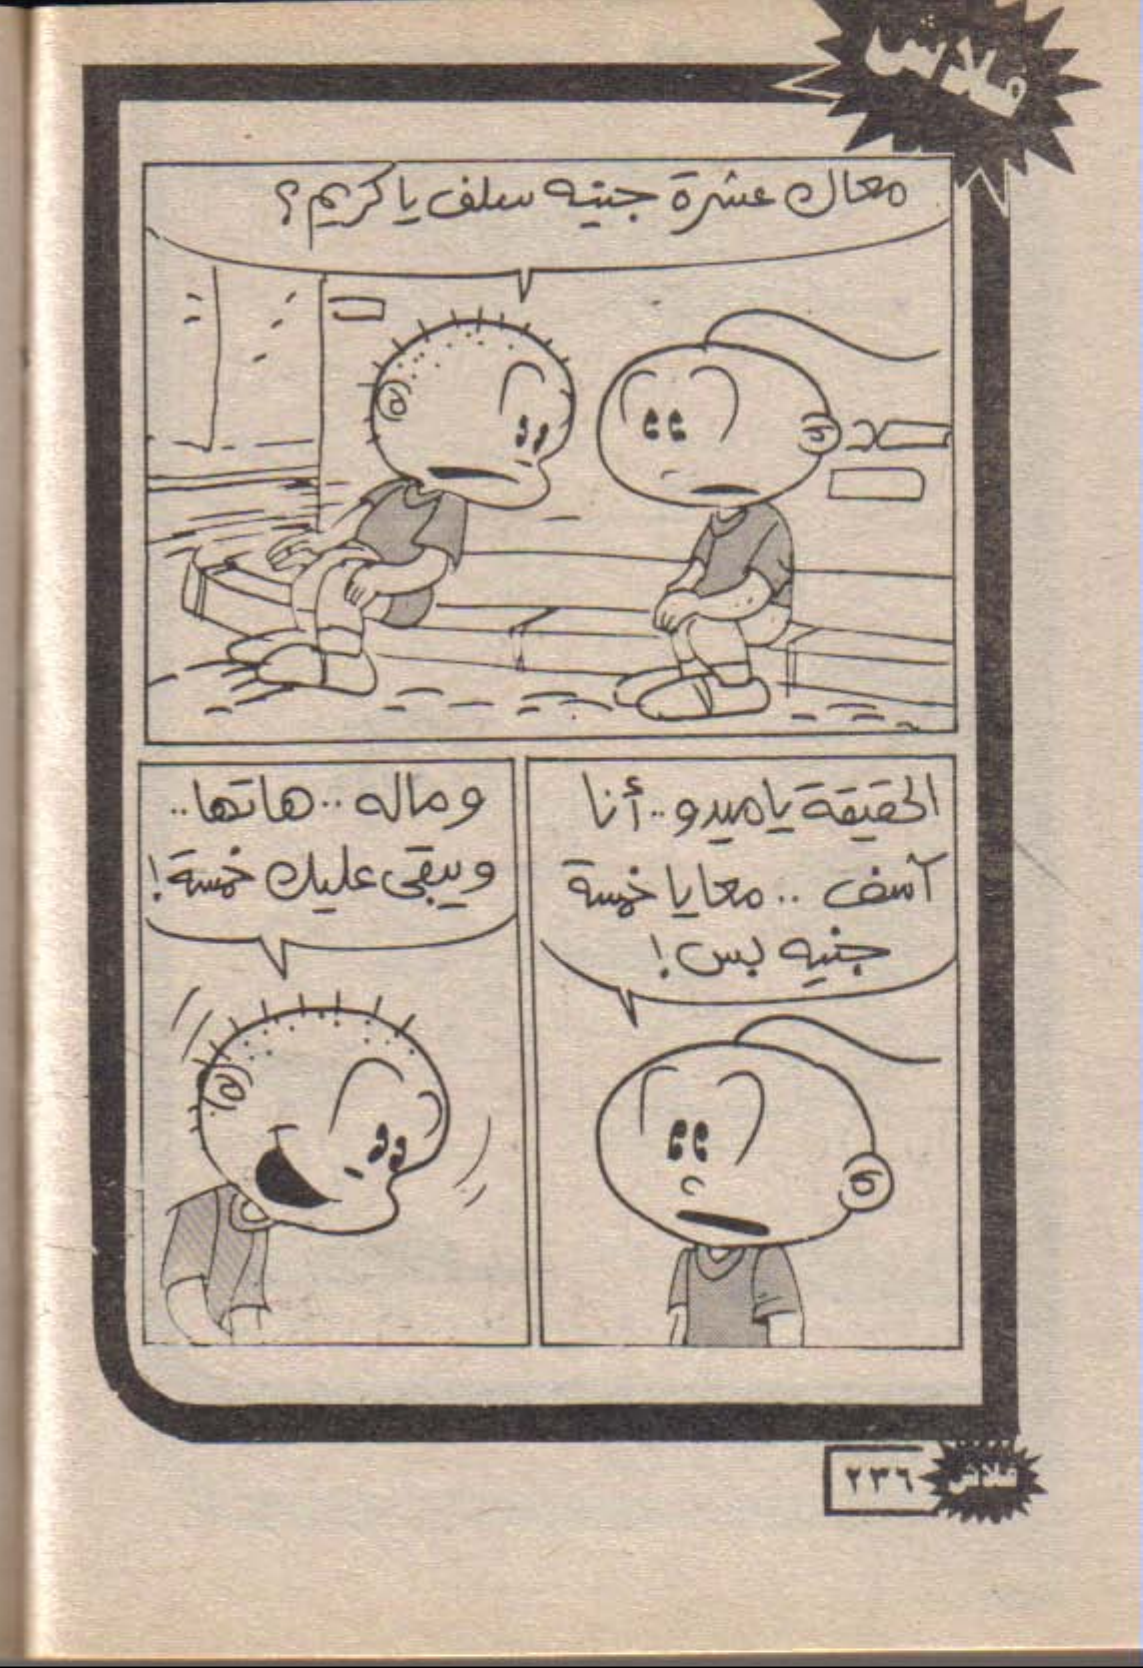 فلاش
معاك عشرة جنيه سلف يا كريم؟
الحقيقة يا ميدو.. أنا
آسف .. معايا خمسة
جنيه بس!
وماله .. هاتها..
ويبقى عليك خمسة!
٢٣٦
فلاش